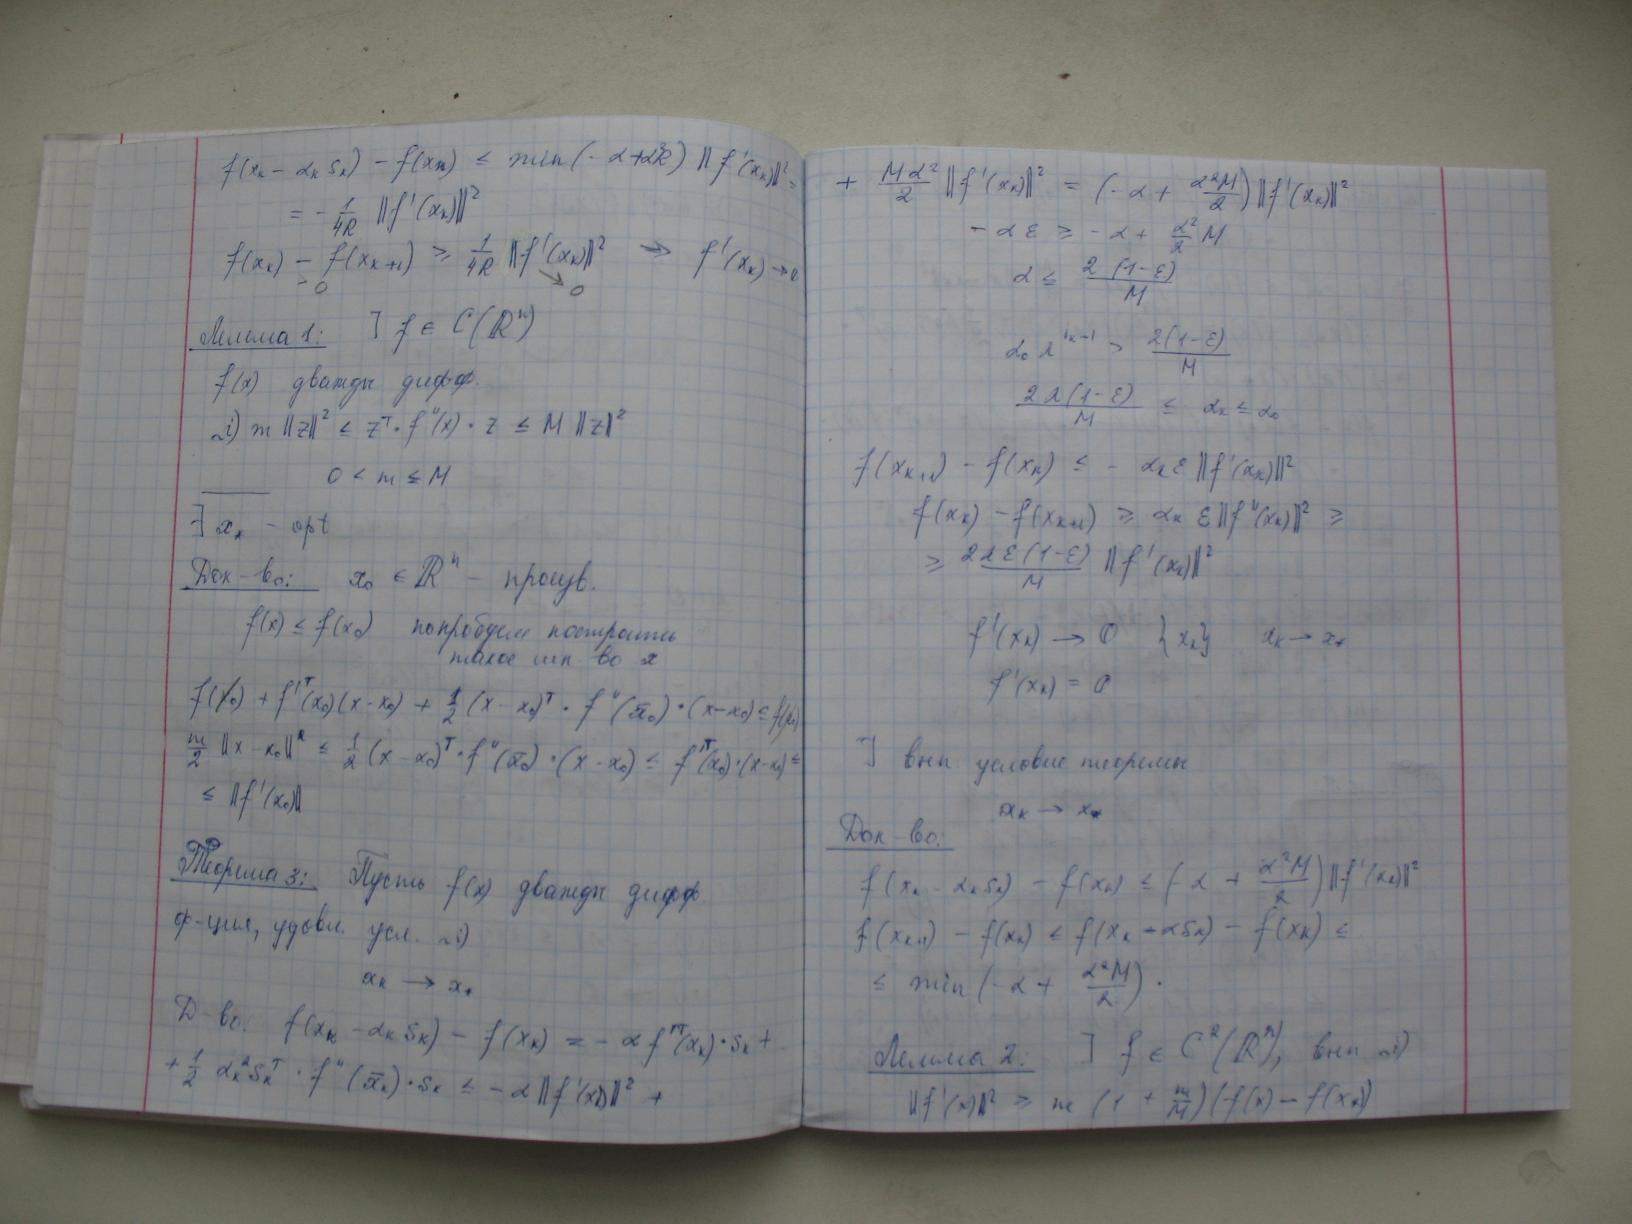 f(xₖ - αₖ sₖ) - f(xₖ) ≤ min(-α + α²R) ||f'(xₖ)||² =
= - 1/4R ||f'(xₖ)||²
f(xₖ) - f(xₖ₊₁) ≥ 1/4R ||f'(xₖ)||² ⇒ f'(xₖ) → 0
→ 0 → 0
Лемма 1: ] f ∈ C(ℝⁿ)
f(x) дважды дифф.
m ||z||² ≤ zᵀ · f''(x) · z ≤ M ||z||²
0 < m ≤ M
] x* - opt
Док-во: x₀ ∈ ℝⁿ - произв.
f(x) ≤ f(x₀) попробуем построить
такое мн-во x
f(x₀) + f'ᵀ(x₀)(x - x₀) + 1/2 (x - x₀)ᵀ · f''(x̄₀) · (x - x₀) ≤ f(x₀)
m/2 ||x - x₀||² ≤ 1/2 (x - x₀)ᵀ · f''(x̄₀) · (x - x₀) ≤ f'ᵀ(x₀) · (x - x₀) ≤
≤ ||f'(x₀)||
Теорема 3: Пусть f(x) дважды дифф
ф-ция, удовл. усл.
xₖ → x*
Д-во: f(xₖ - αₖ sₖ) - f(xₖ) = - α f'ᵀ(xₖ) · sₖ +
+ 1/2 αₖ² sₖᵀ · f''(x̄ₖ) · sₖ ≤ - α ||f'(xₖ)||² +
+ Mα²/2 ||f'(xₖ)||² = (-α + α²M/2) ||f'(xₖ)||²
- α ε ≥ - α + α²/2 M
α ≤ 2(1-ε)/M
α₀ λ^{iₖ-1} > 2(1-ε)/M
2λ(1-ε)/M ≤ αₖ ≤ α₀
f(xₖ₊₁) - f(xₖ) ≤ - αₖ ε ||f'(xₖ)||²
f(xₖ) - f(xₖ₊₁) ≥ αₖ ε ||f'(xₖ)||² ≥
≥ 2λε(1-ε)/M ||f'(xₖ)||²
f'(xₖ) → 0 {xₖ} xₖ → x*
f'(xₖ) = 0
] вып. условие теоремы
xₖ → x*
Док-во:
f(xₖ - αₖ sₖ) - f(xₖ) ≤ (-α + α²M/2) ||f'(xₖ)||²
f(xₖ₊₁) - f(xₖ) ≤ f(xₖ - αsₖ) - f(xₖ) ≤
≤ min (-α + α²M/2) ·
Лемма 2: ] f ∈ C²(ℝⁿ), вып
||f'(x)||² ≥ m (1 + m/M) (f(x) - f(x*))